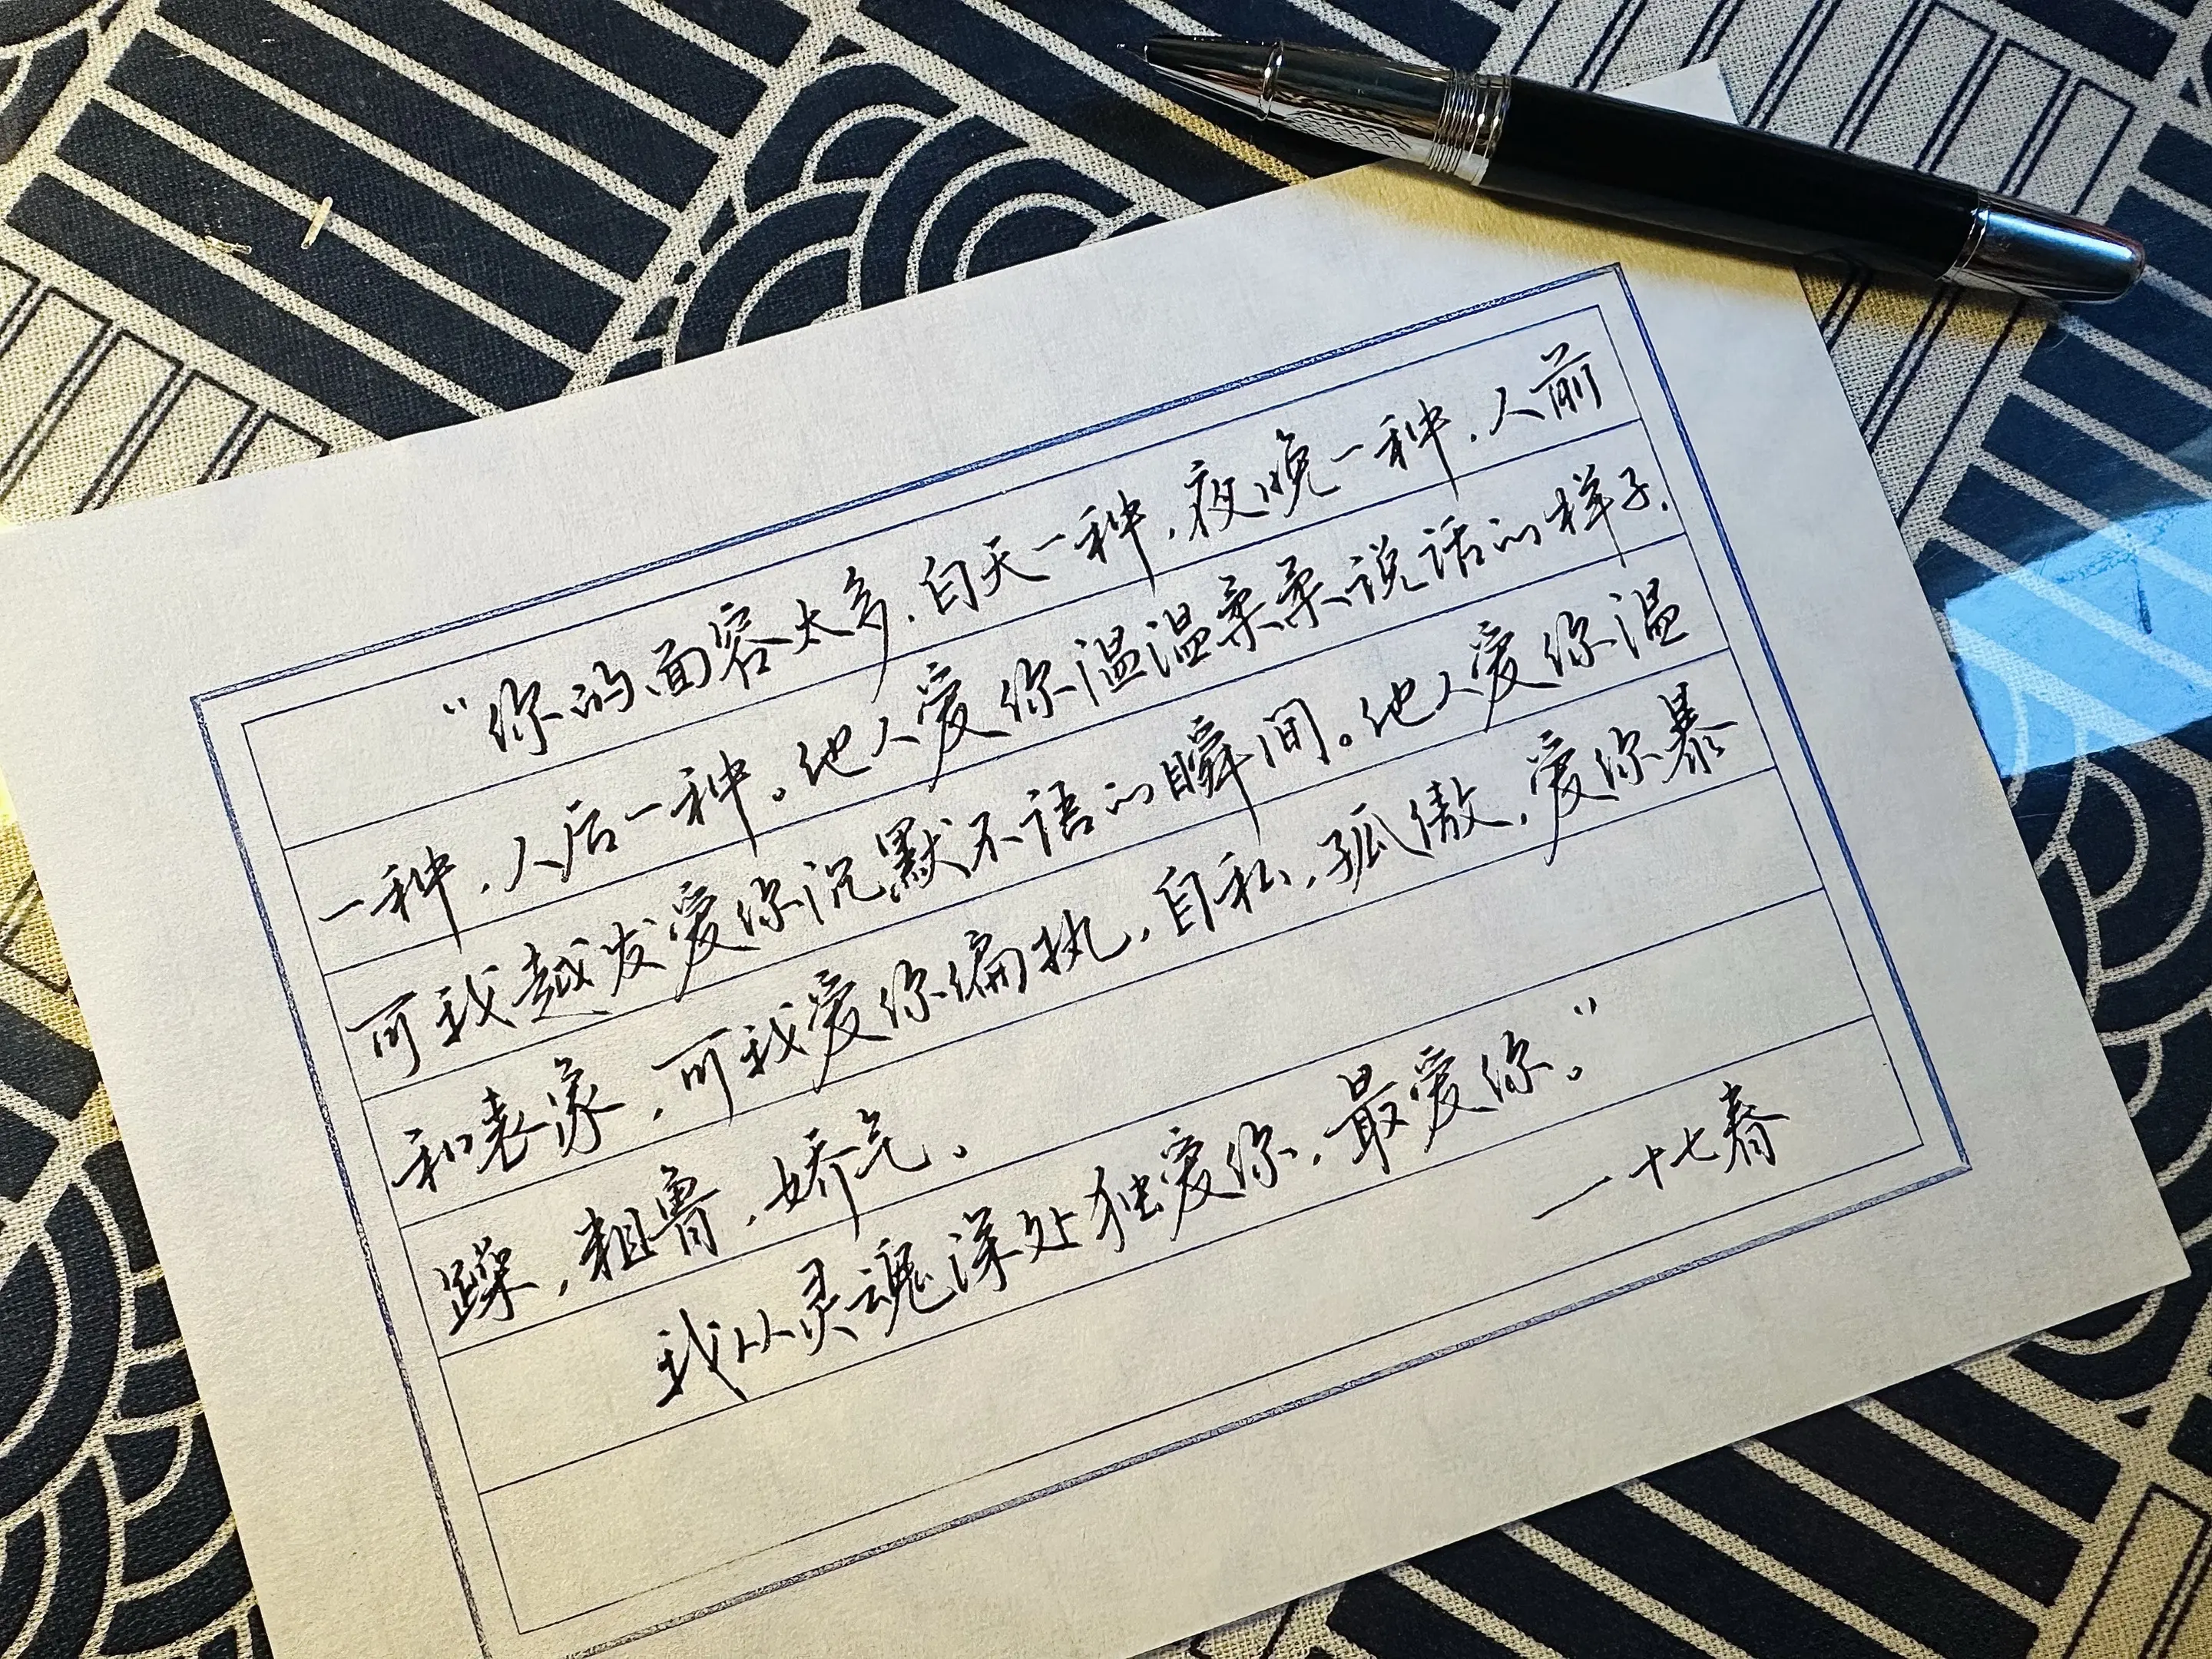 “你的面容太多，白天一种，夜晚一种，人前
一种，人后一种。他人爱你温温柔柔说话的样子，
可我越发爱你沉默不语的瞬间。他人爱你温
和表象，可我爱你偏执，自私，孤傲，爱你暴
躁，粗鲁，娇气。
我从灵魂深处独爱你，最爱你。”
—十七春